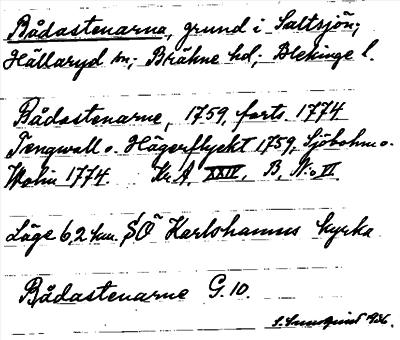 Bådastenarna, grund i Saltsjön;
Hällaryd sn; Bräkne hd; Blekinge l.
Bådastenarne, 1759 forts. 1774
Hägerflycht 1759, Sjöbohm o.
1774. Kr.A. XXIV, B, N:o VI
Läge 6,2 km. SO Karlshamns kyrka
Bådastenarne G.10.